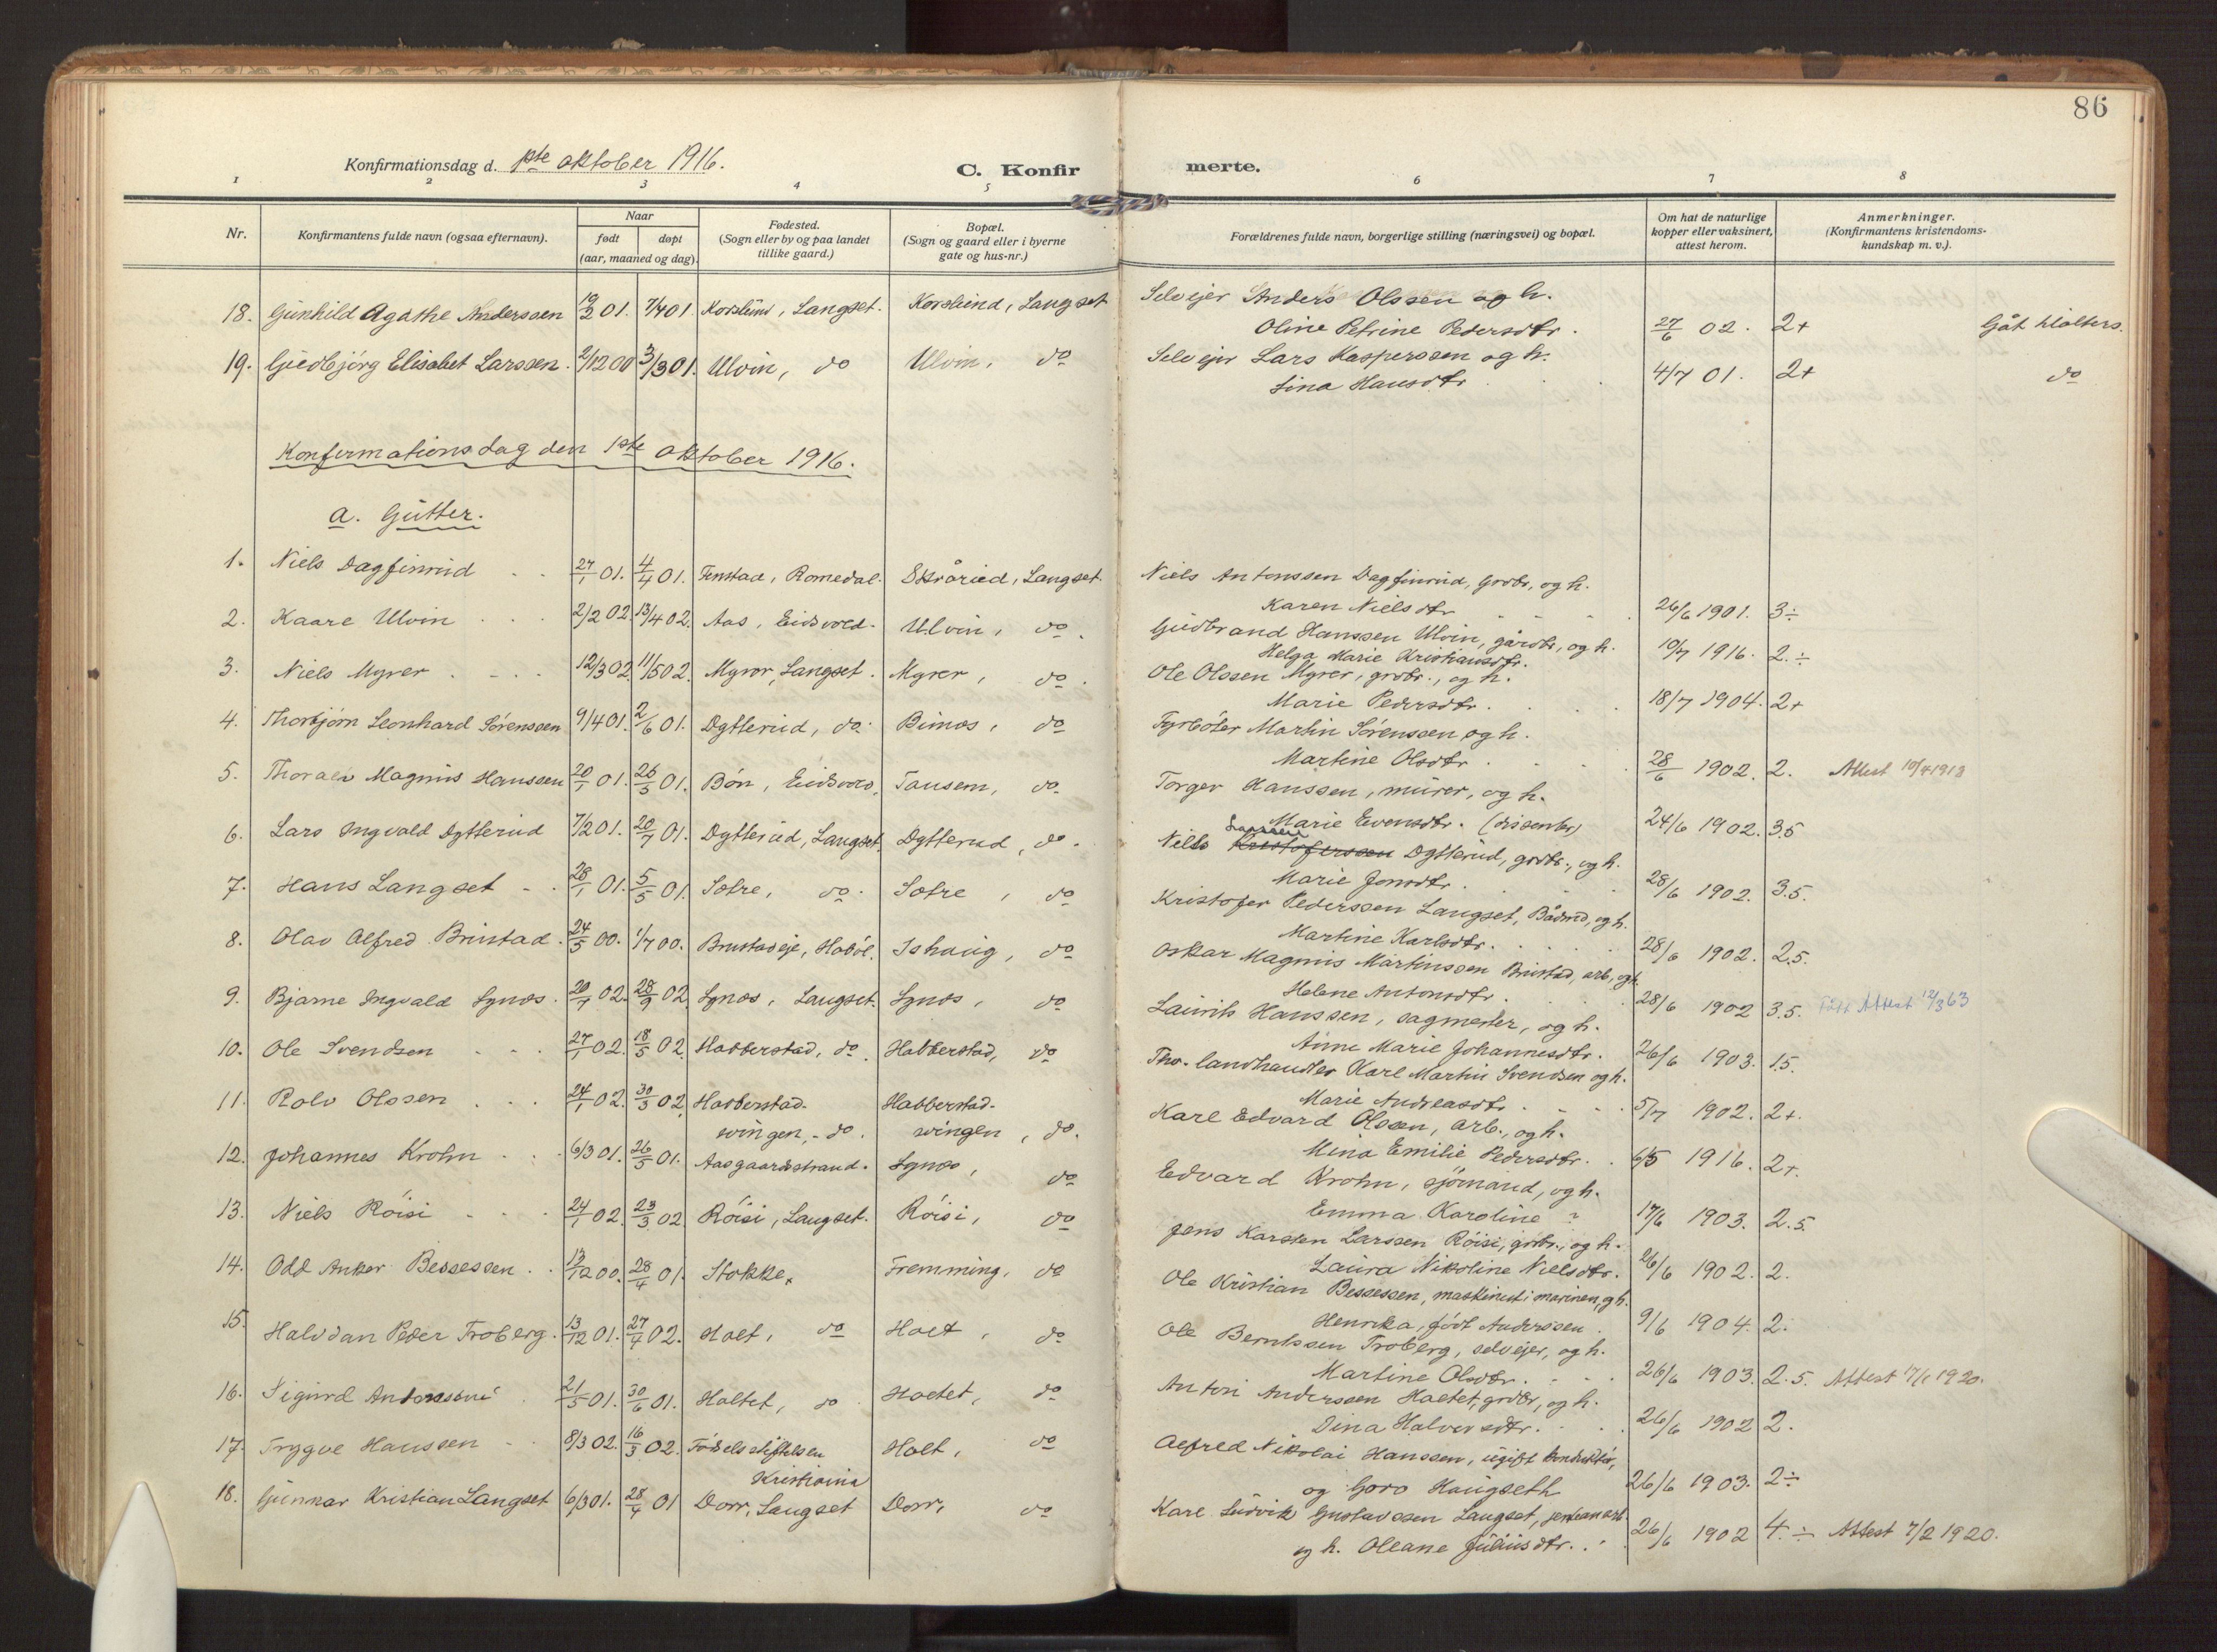 86
Konfirmationsdag d. 1ste oktober 1916.
C. Konfirmerte.
1 2 3 4 5 6 7 8
Nr.
Konfirmantens fulde navn (ogsaa efternavn).
Naar
født
døpt
(aar, maaned og dag).
Fødested.
(Sogn eller by og paa landet
tillike gaard.)
Bopæl.
(Sogn og gaard eller i byerne
gate og hus-nr.)
Forældrenes fulde navn, borgerlige stilling (næringsvei) og bopæl.
Om hat de naturlige
kopper eller vaksinert,
attest herom.
Anmerkninger.
(Konfirmantens kristendoms-
kundskap m. v.).
18. Gunhild Agathe Anderssen 19/2 01. 7/4 01 Korslund, Langset. Korslund, Langset Selveier Anders Olssen og h.
Oline Petrine Pedersdtr. 27/6 02. 2+ Gåt hialters.
19. Gudbjörg Elisabet Larssen. 2/12 00 3/3 01. Ulvin, do Ulvin, do Selveier Lars Kasperssen og h.
Lina Hansdtr. 4/7 01. 2+ do
Konfirmationsdag den 1ste oktober 1916.
a. Gutter.
1. Niels Dagfinrud 27/1 01. 4/4 01. Finstad, Romedal. Skråried, Langset. Niels Antonssen Dagfinrud, grdbr, og h.
Karen Nielsdtr 26/6 1901. 3÷
2. Kaare Ulvin 2/2 02 13/4 02. Aas, Eidsvold. Ulvin, do. Gudbrand Hanssen Ulvin, gårdbr, og h.
Helga Marie Kristiansdtr. 10/7 1916. 2.÷
3. Niels Myrer 12/3 02 11/5 02. Myrer, Langset. Myrer, do. Ole Olssen Myrer, grdbr., og h.
Marie Pedersdtr. 18/7 1904. 2+
4. Thorbjörn Leonhard Sörenssen 9/4 01. 2/6 01. Dytterud, do. Bimos, do Fyrböter Martin Sörenssen og h.
Martine Olsdtr. 28/6 1902. 2. Attest 10/4 1918
5. Thoralv Magnus Hanssen 20/1 01. 26/5 01. Bön, Eidsvold, Tausem, do. Torger Hanssen, murer, og h.
Marie Evensdtr. (dissenter) 24/6 1902. 3.5
6. Lars Ingvald Dytterud 7/2 01. 20/7 01. Dytterud, Langset. Dytterud, do. Niels Larssen Kristoferssen Dytterud, grdbr., og h.
Marie Jonsdtr. 28/6 1902. 3.5.
7. Hans Langset 28/1 01. 5/5 01. Sotre, do. Sotre, do Kristofer Pederssen Langset, Bådmd, og h.
Martine Karlsdtr. 28/6 1902. 2.5.
8. Olav Alfred Brustad. 24/5 00. 1/7 00. Brustadeje, Hobøl. Ishavig, do Oskar Magnus Martinssen Brustad, arb, og h.
Helene Antonsdtr. 28/6 1902 3.5. Attest 12/3 63
9. Bjarne Ingvald Lynæs. 20/7 02. 28/9 02 Lynæs, Langset. Lynæs, do Laurits Hanssen, sagmester, og h.
Anne Marie Johannesdtr. 26/6 1903. 1.5.
10. Ole Svendsen 27/1 02. 18/5 02 Habberstad, do. Habberstad, do Tho. landhandler Karl Martin Svendsen og h.
Marie Andreasdtr. 5/7 1902. 2+.
11. Rolv Olssen 24/1 02. 30/3 02. Habberstad-
svingen, - do. Habberstad-
svingen, do. Karl Edvard Olssen, arb., og h.
Mina Emilie Pedersdtr. 6/5 1916. 2+.
12. Johannes Krohn 6/3 01. 26/5 01. Aasgaardsstrand. Lynæs, do Edvard Krohn, sjömand, og h.
Emma Karoline ? 17/6 1903. 2.5.
13. Niels Röisi 24/1 02. 23/3 02 Röisi, Langset. Röisi, do Jens Karsten Larssen Röisi, grdbr., og h.
Laura Nikoline Nielsdtr. 26/6 1902. 2.
14. Odd Anker Bessesen 13/12 00. 28/4 01. Stokke. Fremming, do Ole Kristian Bessesen, maskinist i marinen, og h.
Henrika, födt Anderssen. 9/6 1904. 2.
15. Halvdan Peder Froberg. 13/12 01. 27/4 02. Holt, do Holt, do Ole Berntssen Froberg, selvejer, og h.
Martine Olsdtr. 26/6 1903. 2.5. Attest 17/1 1920.
16. Sigurd Antonssen 21/5 01. 30/6 01. Holtet, do Holtet, do Anton Anderssen Holtet, grdbr, og h.
Dina Halvorsdtr. 26/6 1902 2.
17. Trygve Hanssen 8/3 02. 16/3 02. Födselsstiftelsen
Kristiania Holt, do Alfred Nikolai Hanssen, ugift konduktör,
og Goro Haugseth 26/6 1903. 2÷
18. Gunnar Kristian Langset 6/3 01. 28/4 01 Dorr, Langset Dorr, do Karl Ludvik Gustavssen Langset, jernbanearb.
og h. Oleane Juliusdtr. 26/6 1902 4.÷ Attest 7/2 1920.